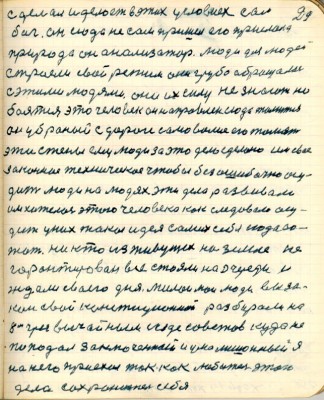 29
сделал и делость в этих условиях сам
бич, он сюда не сам пришел его прислала
природа он анализатор. Люди для людей
строем свой режим они грубо обращали
с этими людями, они их силу не знают но
боятся это человек он направлен сюда томится
он убраный с дороги самовольно его томят
эти стены ему люди за это дело сделано им свое
законное техническое чтобы безошибатно су-
дить люди на людях эти дела развивали
им хотелось этого человека как следовало су-
дить у них такая идея самих себя подго-
тот. никто из живущих на земле не
гарантирован все стояли на очереди и
ждали своего дня. Милои мои люди в моза-
ком свой конституционой разбирали на
8м чрезвычайном сезде советов куда не
попадал заключенный и умалишонный я
на него приехал так как любитель этого
дела сохранения себя